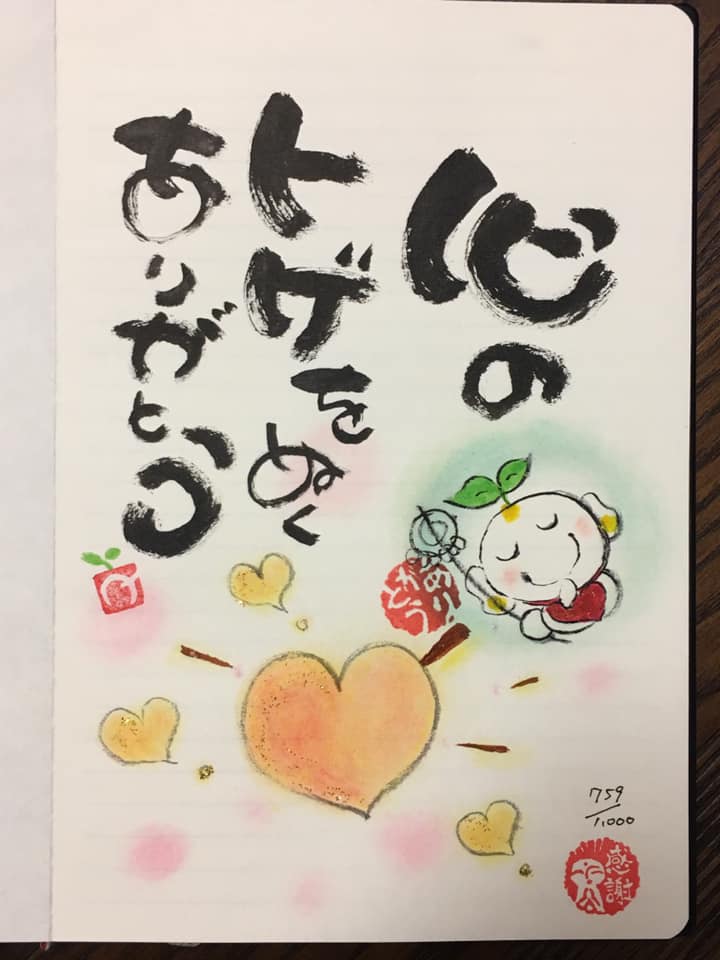 心の
トゲをぬく
ありがとう
ありがとう
759
/1,000
感謝